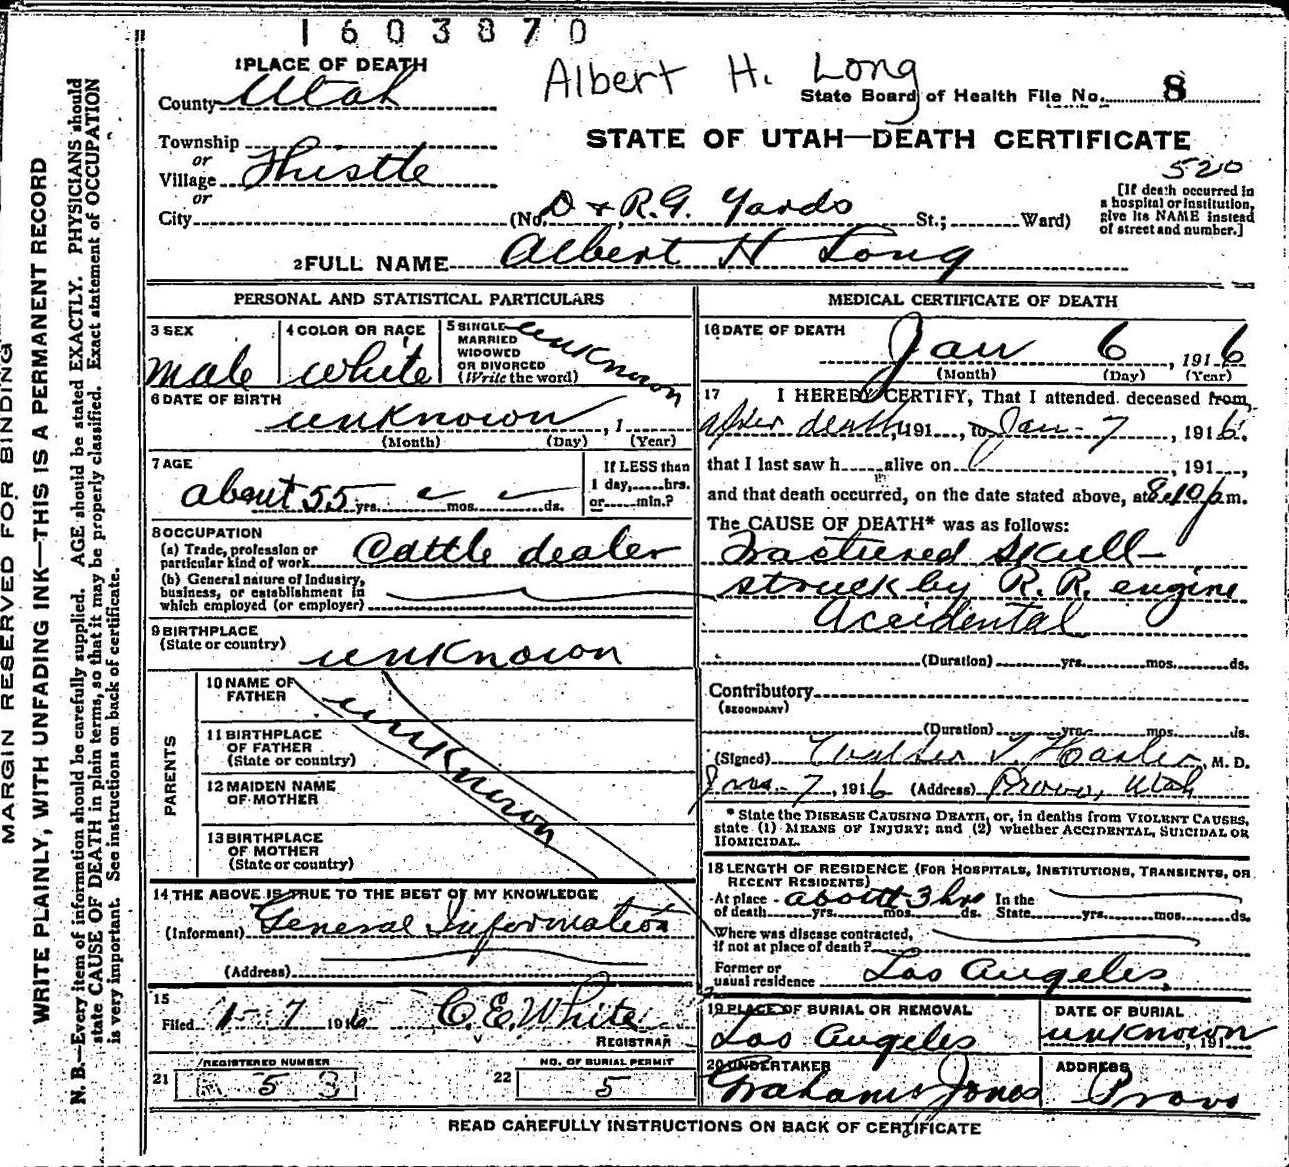 1603870
Albert H. Long
1 PLACE OF DEATH
County Utah
State Board of Health File No. 8
STATE OF UTAH—DEATH CERTIFICATE
520
Township
or
Village Thistle
or
City (No. D & R.G. Yards St.; Ward)
[If death occurred in
a hospital or institution,
give its NAME instead
of street and number.]
2 FULL NAME Albert H Long
PERSONAL AND STATISTICAL PARTICULARS
3 SEX
male
4 COLOR OR RACE
white
5 SINGLE
MARRIED
WIDOWED
OR DIVORCED
(Write the word)
unknown
6 DATE OF BIRTH
unknown, 1
(Month) (Day) (Year)
7 AGE
about 55 yrs. mos. ds.
If LESS than
1 day, hrs.
or min.?
8 OCCUPATION
(a) Trade, profession or
particular kind of work Cattle dealer
(b) General nature of Industry,
business, or establishment in
which employed (or employer)
9 BIRTHPLACE
(State or country) unknown
PARENTS
10 NAME OF
FATHER
11 BIRTHPLACE
OF FATHER
(State or country)
12 MAIDEN NAME
OF MOTHER
13 BIRTHPLACE
OF MOTHER
(State or country)
unknown
14 THE ABOVE IS TRUE TO THE BEST OF MY KNOWLEDGE
(Informant) General Information
(Address)
15
Filed 1-7 1916 C. E. White
REGISTRAR
REGISTERED NUMBER
21 53
NO. OF BURIAL PERMIT
22 5
MEDICAL CERTIFICATE OF DEATH
16 DATE OF DEATH
Jan 6, 1916
(Month) (Day) (Year)
17 I HEREBY CERTIFY, That I attended deceased from
after death, 191, to Jan-7, 1916,
that I last saw h alive on, 191,
and that death occurred, on the date stated above, at 8:10 p m.
The CAUSE OF DEATH* was as follows:
Fractured skull—
struck by R. R. engine
Accidental
(Duration) yrs. mos. ds.
Contributory
(SECONDARY)
(Duration) yrs. mos. ds.
(Signed) Walter T. Hasler, M. D.
Jan. 7, 1916 (Address) Provo, Utah
* State the DISEASE CAUSING DEATH, or, in deaths from VIOLENT CAUSES,
state (1) MEANS OF INJURY; and (2) whether ACCIDENTAL, SUICIDAL OR
HOMICIDAL.
18 LENGTH OF RESIDENCE (FOR HOSPITALS, INSTITUTIONS, TRANSIENTS, OR
RECENT RESIDENTS)
At place about 3 hrs In the
of death yrs. mos. ds. State yrs. mos. ds.
Where was disease contracted,
if not at place of death?
Former or
usual residence Los Angeles,
19 PLACE OF BURIAL OR REMOVAL
Los Angeles
DATE OF BURIAL
unknown, 191
20 UNDERTAKER
Graham & Jones
ADDRESS
Provo
READ CAREFULLY INSTRUCTIONS ON BACK OF CERTIFICATE
MARGIN RESERVED FOR BINDING
WRITE PLAINLY, WITH UNFADING INK—THIS IS A PERMANENT RECORD
N. B.—Every item of information should be carefully supplied. AGE should be stated EXACTLY. PHYSICIANS should
state CAUSE OF DEATH in plain terms, so that it may be properly classified. Exact statement of OCCUPATION
is very important. See instructions on back of certificate.